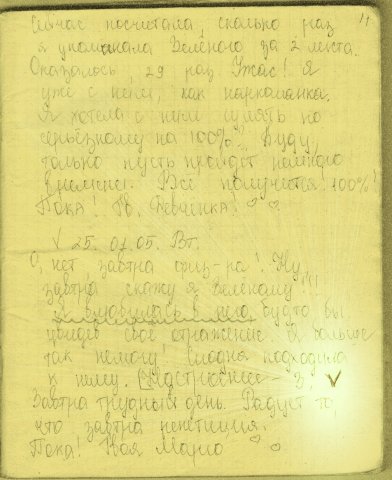 11
Сейчас посчитала, сколько раз
я упоминала Зелёного за 2 листа.
Оказалось, 29 раз. Ужас! Я
уже с ним, как наркоманка.
Я хотела с ним гулять по
серьёзному на 100%? Буду,
только пусть пройдёт немного
времени. Всё получится! 100%!
Пока! Тв. Девченка. ♡ ♡
√ 25. 01. 05. Вт.
О, нет, завтра физ-ра! Ну,
завтра скажу я Зелёному!!!
Я влюбилась в него, будто бы
увидев своё отражение. Я больше
так немогу. подходила
к нему.
Завтра трудный день. Радует то,
что завтра репетиция.
Пока! Твоя ♡ ♡